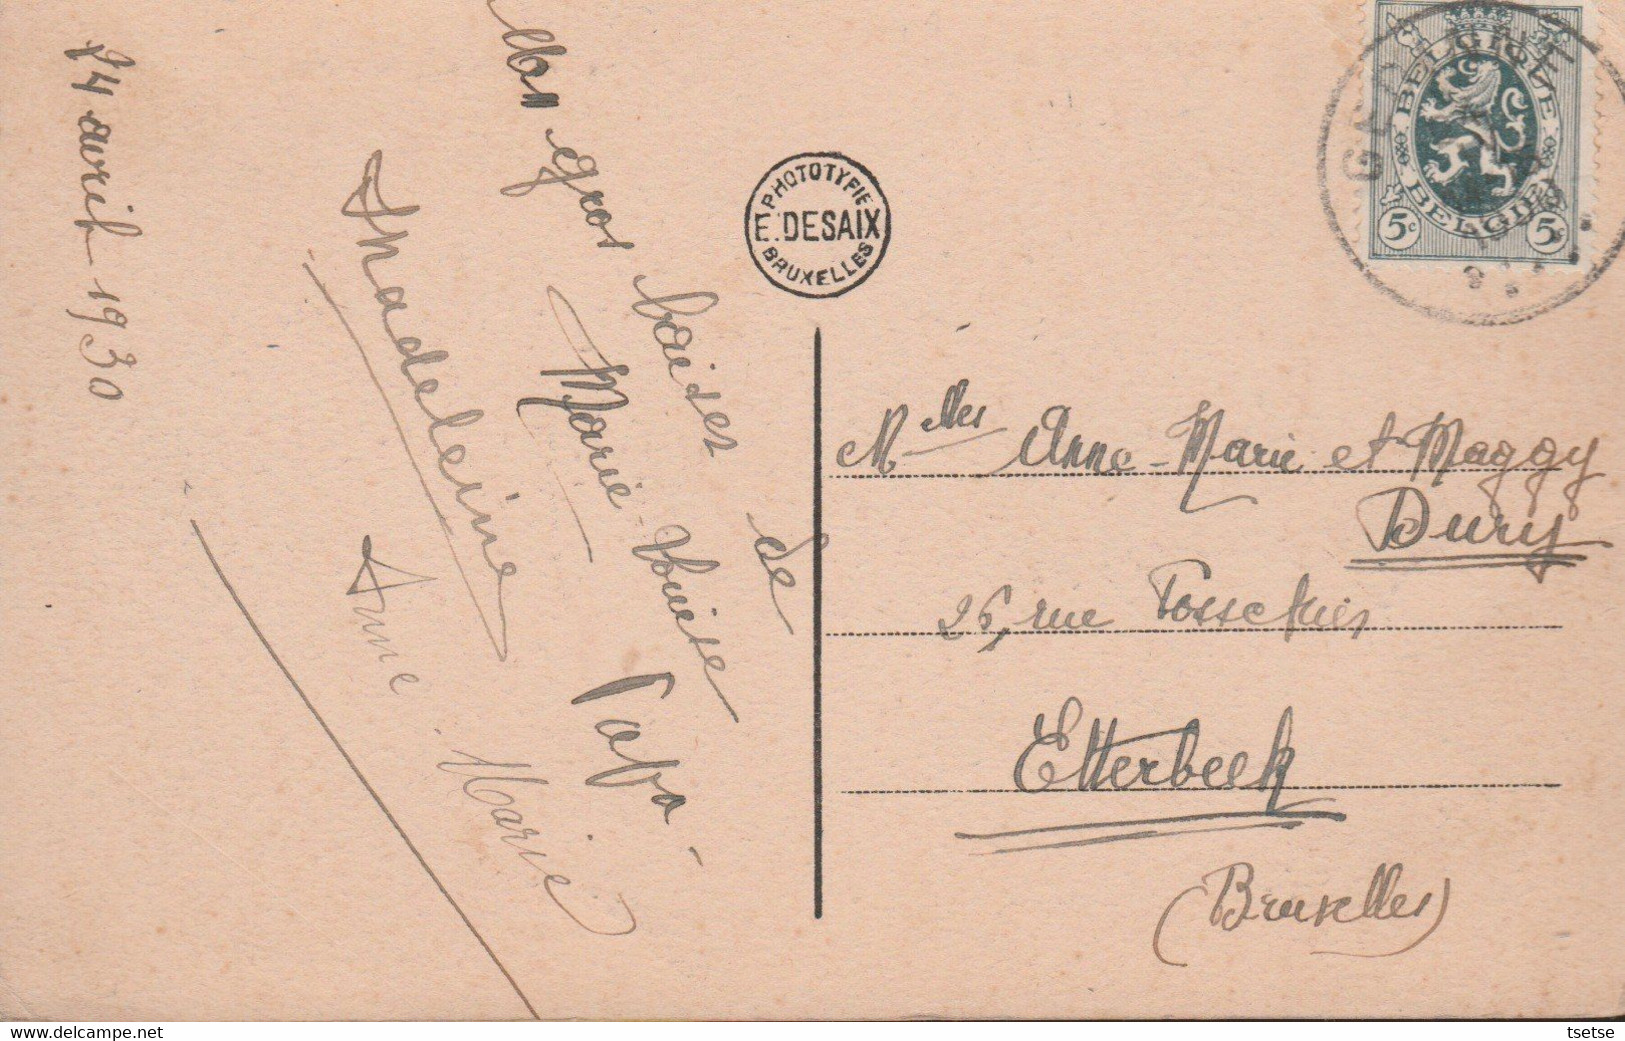 24 avril 1930
Mon gros baiser de
Marie-Louise
Madeleine
Papa
Anne-Marie
PHOTOTYPIE
E. DESAIX
BRUXELLES
BELGIQUE
BELGIË
5c 5c
Mlles Anne-Marie et Maggy
Dury
26, rue
Etterbeek
(Bruxelles)
delcampe.net
tsetse